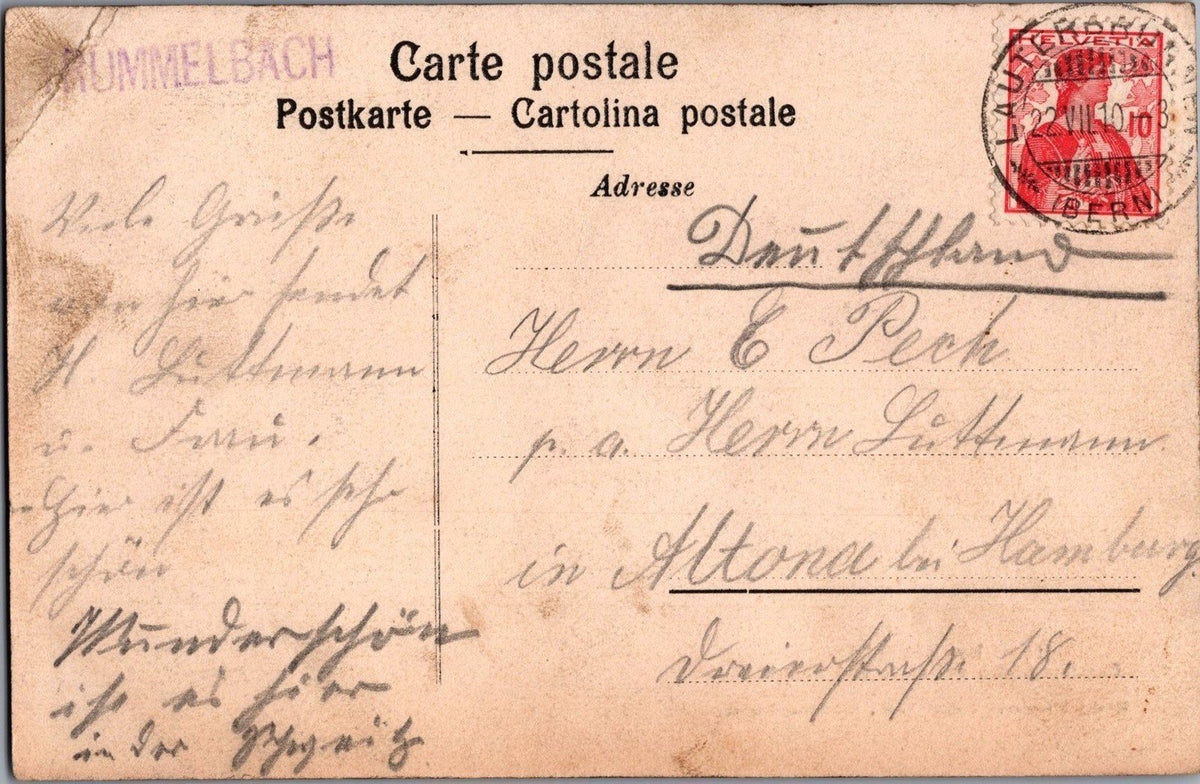 RUMMELBACH
Carte postale
Postkarte — Cartolina postale
Adresse
HELVETIA
10
LAUTERBRUNNEN
22.VIII.10.-8
(BERN)
Viele Grüße
von hier sendet
H. Luttmann
u. Frau.
Hier ist es sehr
schön
Wunderschön
ist es hier
in der Schweitz
Deutschland
Herrn E Pech
p. a. Herrn Luttmann
in Altona bei Hamburg
Dreierstraße 18.